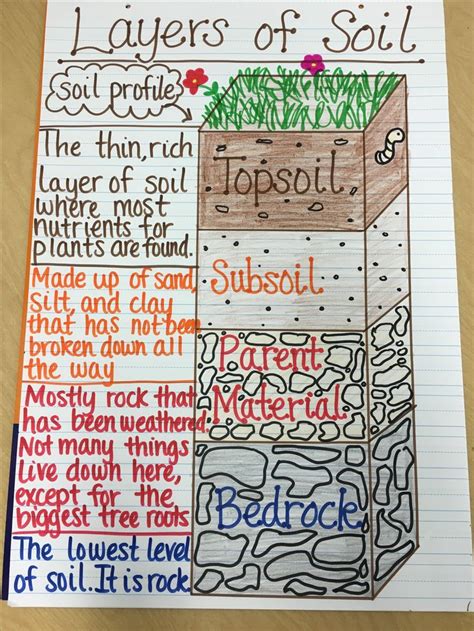 Layers of Soil
soil profile
The thin, rich
layer of soil
where most
nutrients for
plants are found.
Topsoil
Made up of sand,
silt, and clay
that has not been
broken down all
the way
Subsoil
Mostly rock that
has been weathered.
Not many things
live down here,
except for the
biggest tree roots
Parent
Material
The lowest level
of soil. It is rock.
Bedrock